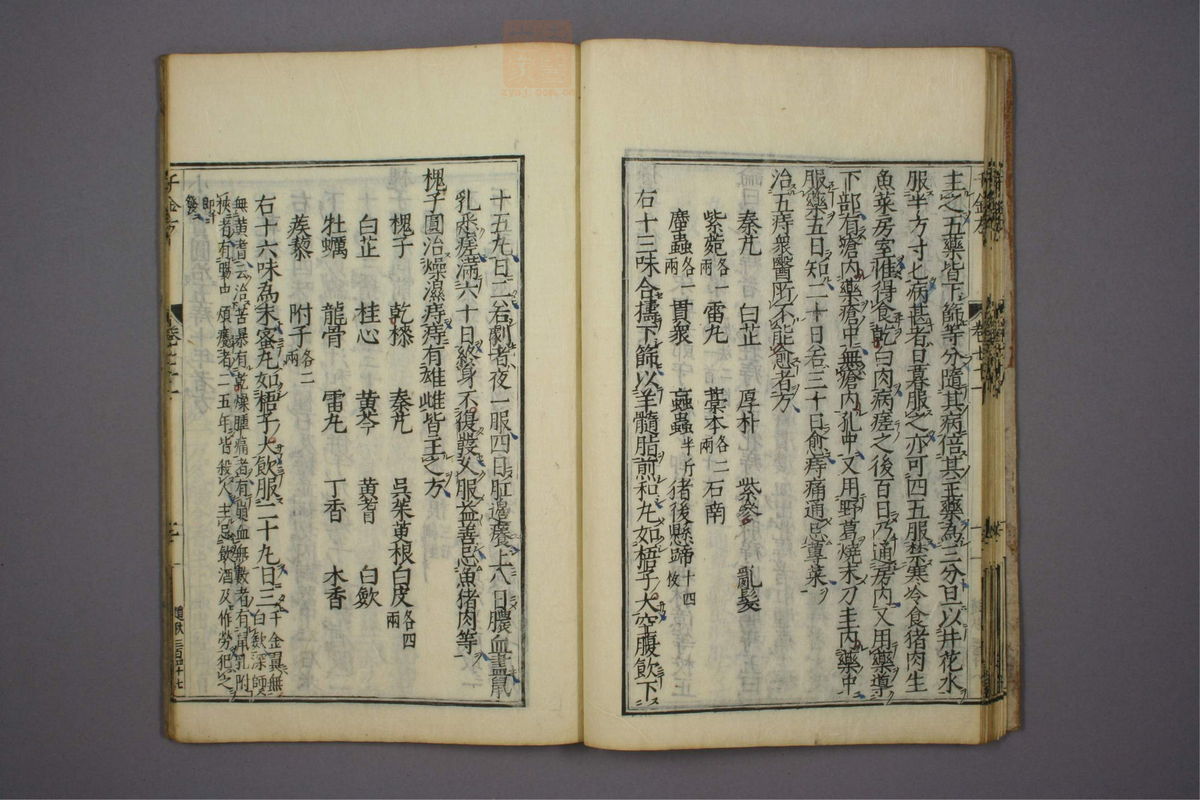 主之五藥皆下篩等分隨其病倍其主藥為三分旦以井花水
服半方寸匕病甚者日暮服之亦可四五服禁寒冷食猪肉生
魚菜房室惟得食乾白肉病瘥之後百日乃通房內又用藥導
下部有瘡內藥瘡中無瘡內孔中又用野葛燒末刀圭內藥中
服藥五日知二十日若三十日愈痔痛通忌蓴菜
治五痔衆醫所不能愈者方
秦艽 白芷 厚朴 紫參 亂髮
紫菀各一兩 雷丸 藁本各二兩 石南
䗪蟲各一兩 貫衆 蝱蟲半升 猪後懸蹄十四枚
右十三味合擣下篩以羊髓脂煎和丸如梧子大空腹飲下
十五丸日二若劇者夜一服四日肛邊癢止八日膿血盡鼠
乳悉瘥滿六十日終身不復發久服益善忌魚猪肉等
槐子圓治燥濕痔痔有雄雌皆主之方
槐子 乾漆 秦艽 吳茱萸根白皮各四兩
白芷 桂心 黃芩 黃耆 白斂
牡蠣 龍骨 雷丸 丁香 木香
蒺藜 附子各二兩
右十六味為末蜜丸如梧子大飲服二十丸日三千金翼無白斂深師
無黃耆云治苦暴有乾燥腫痛者有崩血無數者有鼠孔附
核者有腸中煩癢者三五年皆殺人主忌飲酒及作勞犯之
即發
千金方
卷七十一